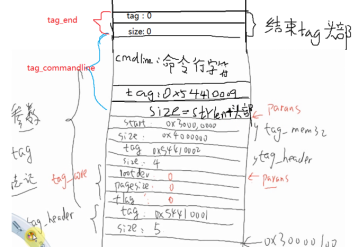 tag_end
tag : 0
size: 0
结束tag头部
tag_commandline
cmdline: 命令行字符
tag: 0x54410009
size=strlen+头部
params
start 0x3000,0000
size: 0x4000000
tag 0x54410002
size: 4
tag_mem32
tag_header
参数
tag
tag_core
rootdev: 0
pagesize: 0
flag: 0
params
tag_header
tag: 0x54410001
size: 5
0x30000100